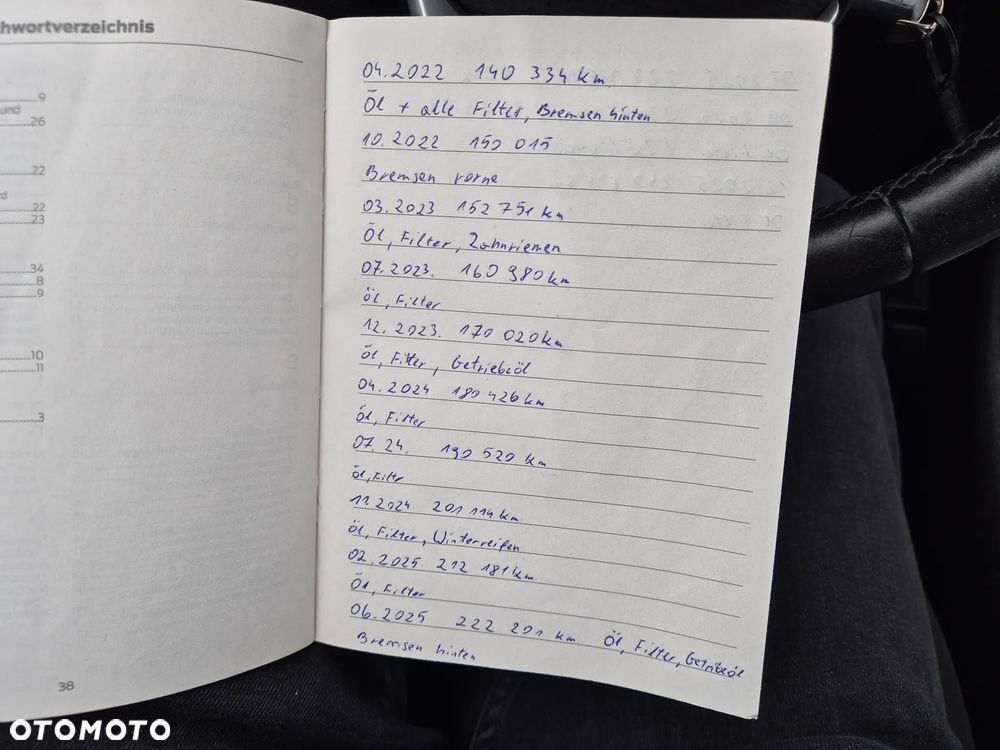 hwortverzeichnis
9
und
26
22
d
22
23
34
8
9
10
11
3
38
04.2022 140 334 km
Öl + alle Filter, Bremsen hinten
10.2022 150 015
Bremsen vorne
03.2023 152 751 km
Öl, Filter, Zahnriemen
07.2023. 160 980 km
Öl, Filter
12.2023. 170 020 km
Öl, Filter, Getriebeöl
04.2024 180 426 km
Öl, Filter
07.24. 190 520 km
Öl, Filtr
11.2024 201 114 km
Öl, Filter, Winterreifen
02.2025 212 181 km
Öl, Filter
06.2025 222 201 km Öl, Filter, Getribeöl
Bremsen hinten
OTOMOTO